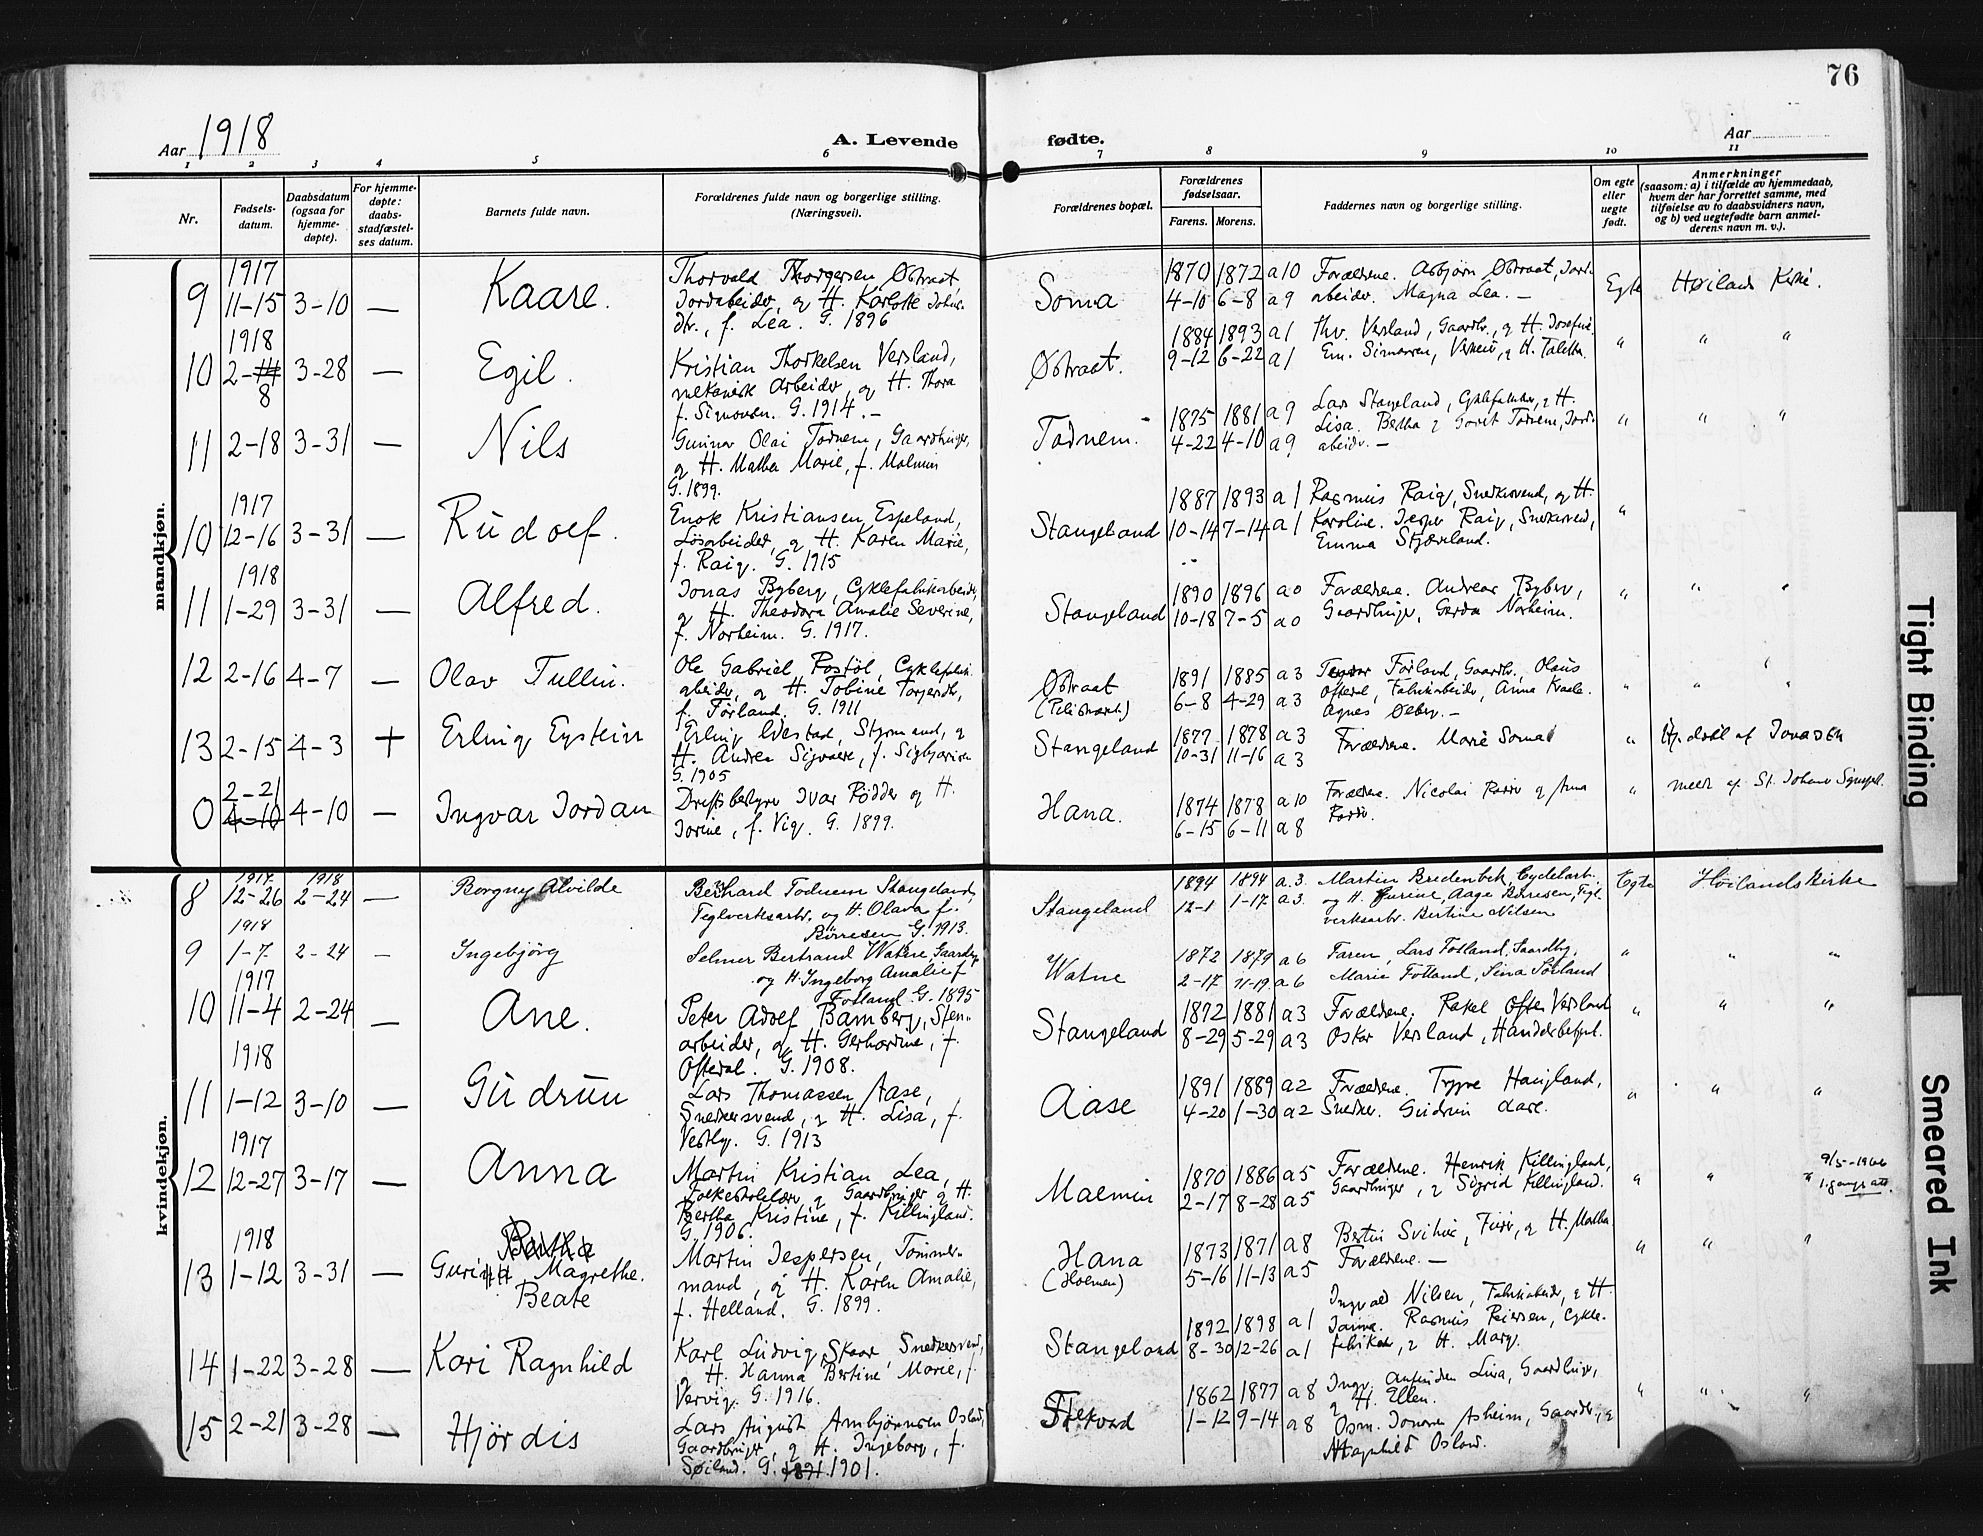 76
Aar 1918
A. Levende fødte.
Aar
1 2 3 4 5 6 7 8 9 10 11
Nr.
Fødsels-
datum.
Daabsdatum
(ogsaa for
hjemme-
døpte).
For hjemme-
døpte:
daabs-
stadfæstel-
ses datum.
Barnets fulde navn.
Forældrenes fulde navn og borgerlige stilling.
(Næringsvei).
Forældrenes bopæl.
Forældrenes
fødselsaar.
Farens. Morens.
Faddernes navn og borgerlige stilling.
Om egte
eller
uegte
født.
Anmerkninger
(saasom: a) i tilfælde av hjemmedaab,
hvem der har forrettet samme, med
tilføielse av to daabsvidners navn,
og b) ved uegtefødte barn anmel-
derens navn m. v.).
mandkjøn.
1917
9 11-15 3-10 — Kaare.
Thorvald Thorgersen Østraat,
Jordabeider, og H. Karlotte Johns-
dtr., f. Lea. G. 1896
Soma
1870 1872 a 10
4-10 6-8 a 9
Forældrene. Asbjørn Østraat, Jord-
abeider. Magna Lea. —
Egte
Høilands Kirke.
1918
10 2-11 8 3-28 — Egil.
Kristian Thorkelsen Versland,
mekanisk arbeider, og H. Thora
f. Simonsen. G. 1914. —
Østraat.
1884 1893 a 1
9-12 6-22 a 1
Thv. Versland, Gaardbr., og H. Josefine.
Em. Simonsen, og H. Talitha.
" " "
11 2-18 3-31 — Nils
Gunnar Olai Todnem, Gaardbruger,
og H. Malha Marie, f. Malmin
G. 1899.
Todnem.
1875 1881 a 9
4-22 4-10 a 9
Lars Stangeland, Cyklefabrikør, og H.
Lisa. Bertha og Gorit Todnem, Jord-
abeider. —
" " "
1917
10 12-16 3-31 — Rudolf.
Enok Kristiansen Espeland,
Løsarbeider, og H. Karen Marie,
f. Raig. G. 1915
Stangeland
1887 1893 a 1
10-14 7-14 a 1
Rasmus Raig, Snedkersvend, og H.
Karoline. Jesper Raig, Snedkersvend,
Emma Stjæveland.
"
1918
11 1-29 3-31 — Alfred.
Jonas Byberg, Cyklefabrikarbeider,
og H. Theodora Amalie Severine,
f. Norheim. G. 1917.
Stangeland
1890 1896 a 0
10-18 7-5 a 0
Forældrene. Andreas Byberg,
Gaardbruger, Gerda Norheim.
" " "
12 2-16 4-7 — Olav Tullin.
Ole Gabriel Rostøl, Cyklefabrik-
abeider, og H. Tobine Torgersdtr.,
f. Førland. G. 1911
Østraat
1891 1885 a 3
6-8 4-29 a 3
Førland, Gaardbr., Olaus
Oftedal, Fabrikarbeider, Anna Kvale.
Agnes Ølberg. —
" " "
13 2-15 4-3 + Erling Eystein
Erling Idestad, Styrmand, og
H. Andrea Sigvalde, f. Sigbjørnsen
G. 1905
Stangeland
1877 1878 a 3
10-31 11-16 a 3
Forældrene. Marie Soma
"
Hj. døbt af Jonassen
2-21
0 4-10 4-10 — Ingvar Jordan
Driftsbestyrer Ivar Rødder og H.
Jorine, f. Vig. G. 1899.
Hana.
1874 1878 a 10
6-15 6-11 a 8
Forældrene. Nicolai Rødder og Anna
Rødder.
"
medl. af St. Johans Synagel.
kvindekjøn.
1917 1918
8 12-26 2-24 — Borgny Alvilde
Bernhard Todnem Stangeland,
Teglverksarb. og H. Olava f.
Børresen G. 1913.
Stangeland
1894 1894 a. 3.
12-1 1-17 a 3.
Martin Bredenbek, Cyclearb.
og H. Jurine, Aage Børresen, Tegl-
verksarb. Bertine Nilsen
Egte
Høilands Kirke
1918
9 1-7 2-24 — Ingebjörg
Selmer Bertrand Watne Gaardbr.
og H. Ingeborg Amalie f.
Fotland G. 1895
Watne
1872 1879 a 6
2-17 11-19 a 6
Faren, Lars Fotland, Gaardbr.,
Marie Fotland, Sina Sørland
" " "
1917
10 11-4 2-24 — Ane.
Peter Adolf Bamberg, Sten-
arbeider, og H. Gerhardine, f.
Oftedal. G. 1908.
Stangeland
1872 1881 a 3
8-29 5-29 a 3
Forældrene. Rakel Ofte Versland
Oskar Versland, Handelsbetjent.
" " "
1918
11 1-12 3-10 — Gudrun
Lars Thomassen Aase,
Snedkersvend, og H. Lisa, f.
Vestly. G. 1913
Aase
1891 1889 a 2
4-20 1-30 a 2
Forældrene. Trygve Haugland,
Snedker. Gudrun Aase.
" " "
1917
12 12-27 3-17 — Anna
Martin Kristian Lea,
Folkeskolelærer og Gaardbruger og H.
Bertha Kristine, f. Killingland.
G. 1906.
Malmin
1870 1886 a 5
2-17 8-28 a 5
Forældrene. Henrik Killingland,
Gaardbruger, og Sigrid Killingland.
" " "
9/5-1966
1. gangs att.
1918
13 1-12 3-31 — Guri Magrethe.
Beate
Martin Jespersen, Tømmer-
mand, og H. Karen Amalie,
f. Helland. G. 1899.
Hana
(Holmen)
1873 1871 a 8
5-16 11-13 a 5
Bertin Svihus, og H. Malha
Forældrene. —
" " "
14 1-22 3-28 — Kari Ragnhild
Karl Ludvig Skaar, Snedkersvend,
og H. Hanna Bertine Marie, f.
Vervig. G. 1916.
Stangeland
1892 1898 a 1
8-30 12-26 a 1
Ingvald Nilsen, Fabrikabeider, og H.
Janna. Rasmus Peiersen, Cykle-
fabrikør, og H. Mary.
15 2-21 3-28 — Hjördis
Lars August Ambjörnsen Osland,
Gaardbruger, og H. Ingeborg, f.
Søiland. G. 1891 1901.
Folkvord
1862 1877 a 8
1-12 9-14 a 8
Ingv. Lura, Gaardbruger,
og H. Ellen.
Osm. Jonassen Asheim, Gaardbr., og
Magnhild Osland.
" " "
Tight Binding
Smeared Ink